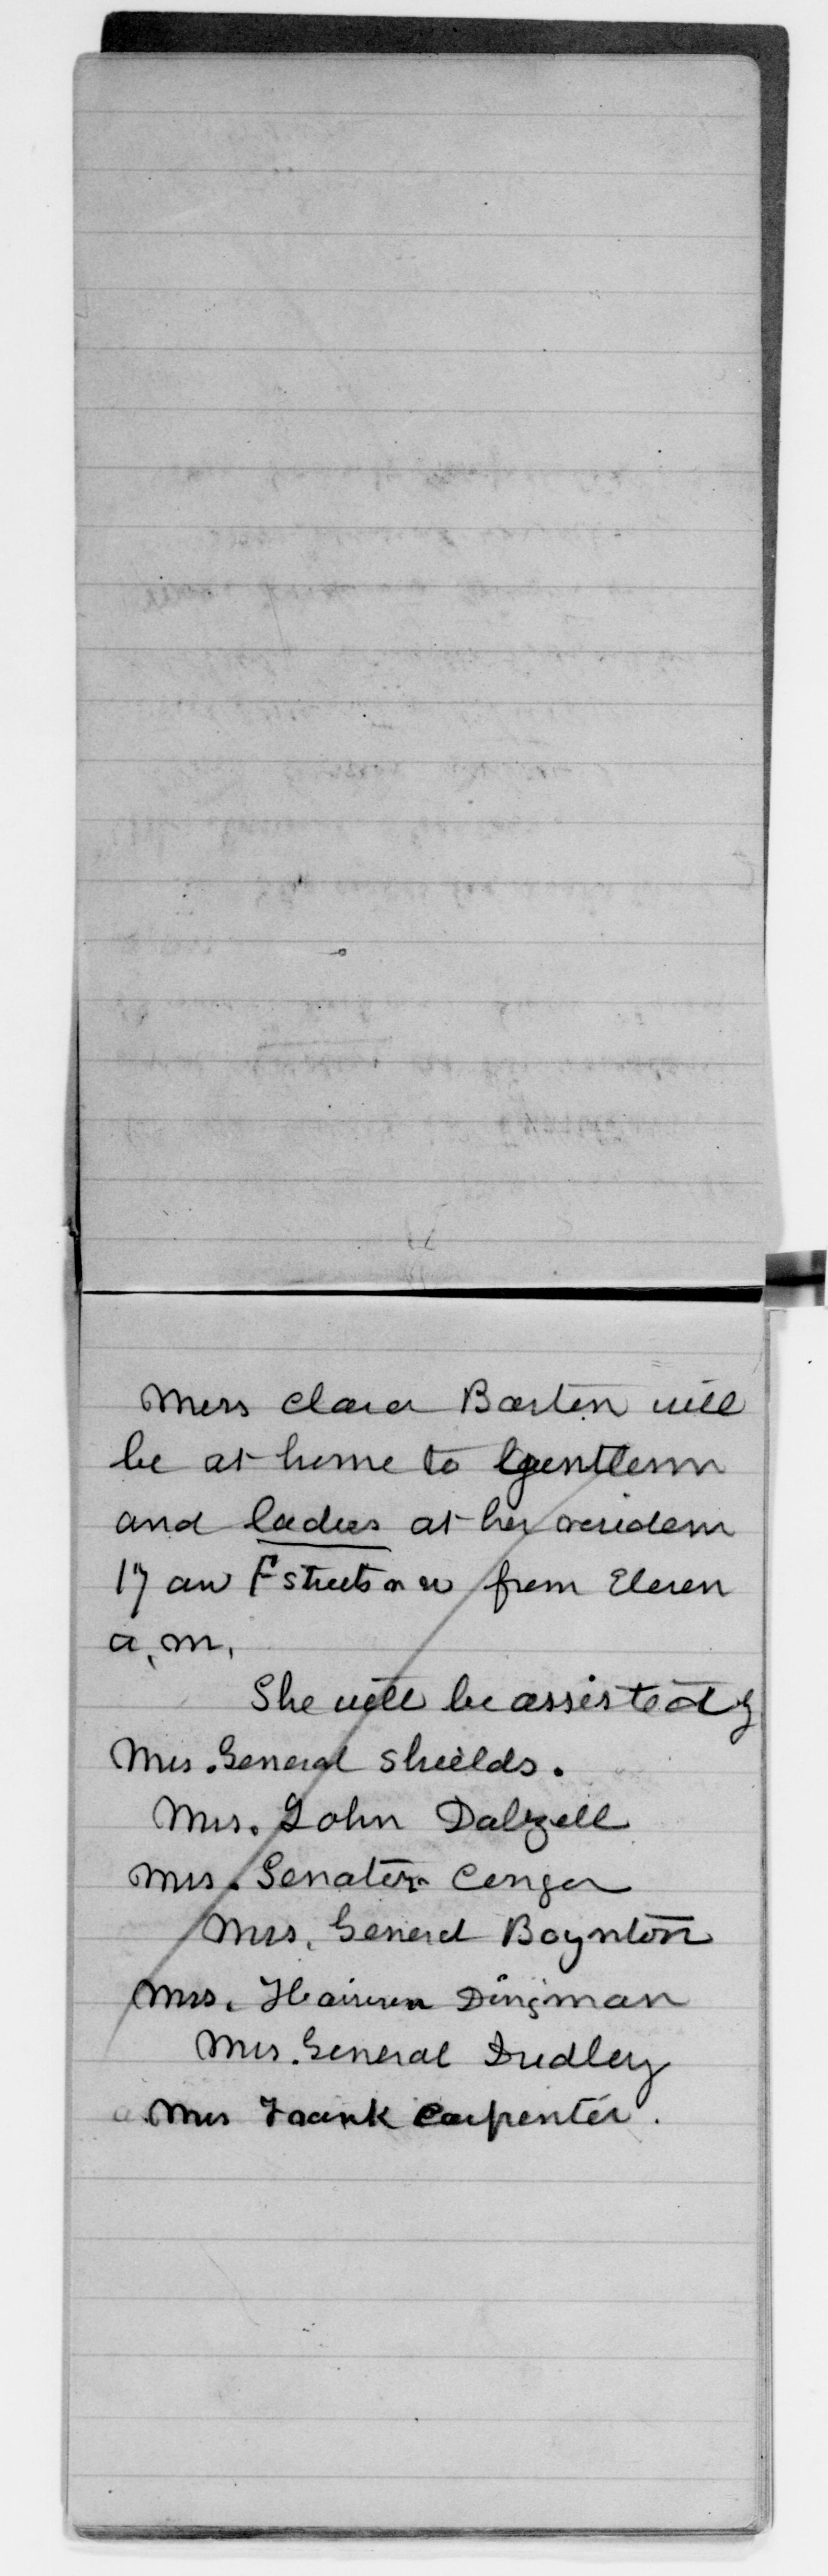 Miss Clara Barton will
be at home to Gentlemn
and ladies at her residem
17 an F streets n w from Eleven
a.m.
She will be assisted by
Mrs. General Shields.
Mrs. John Dalzell
Mrs. Senator Conger
Mrs. General Boynton
Mrs. Harrison Dingman
Mrs. General Dudley
Mrs Frank Carpenter.